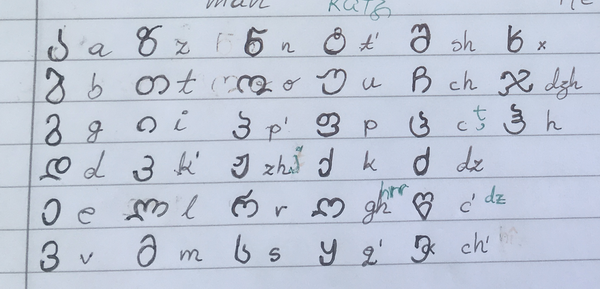 ა a ზ z ნ n ტ t' შ sh ხ x
ბ b თ t ო o უ u ჩ ch ჯ dzh
გ g ი i პ p' ფ p ც c ts ჰ h
დ d კ k' ჟ zh j ქ k ძ dz
ე e ლ l რ r ღ gh hrr წ c' dz
ვ v მ m ს s ყ q' ჭ ch'